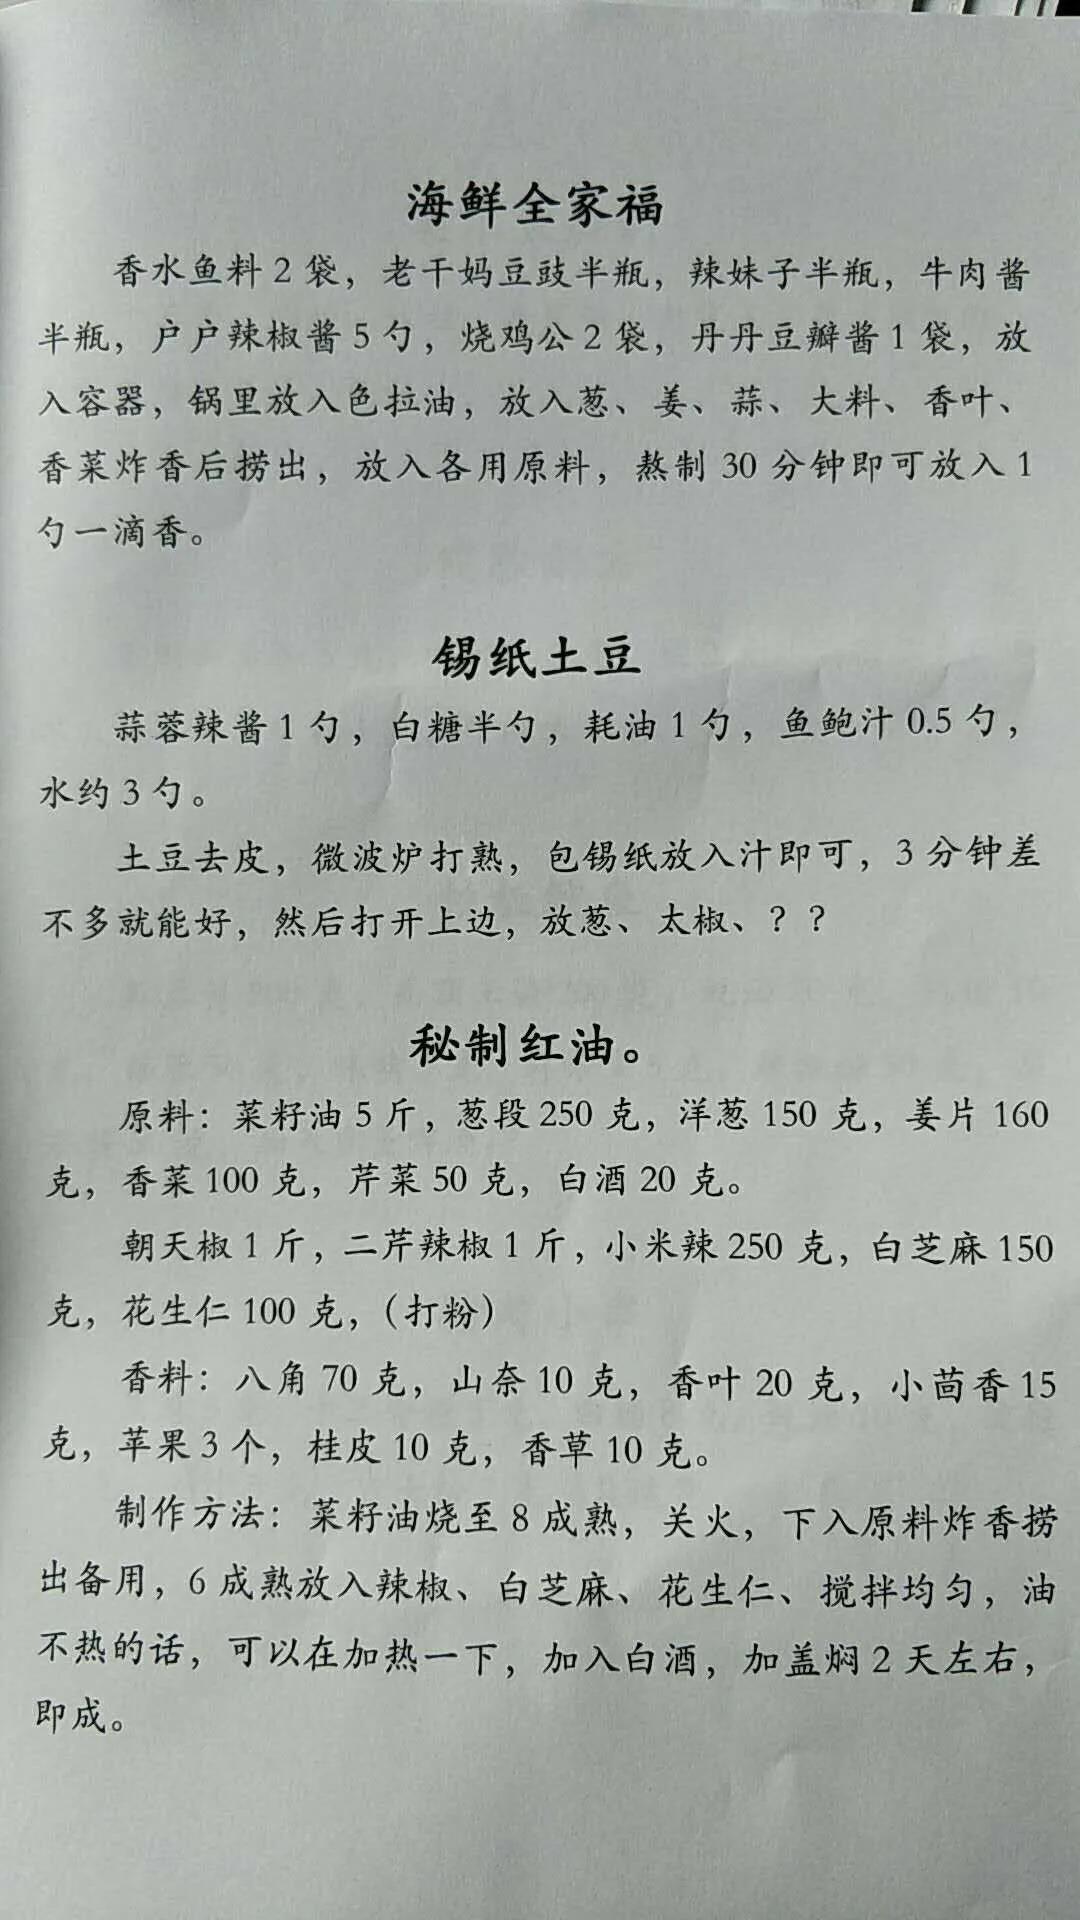 海鲜全家福
香水鱼料 2 袋，老干妈豆豉半瓶，辣妹子半瓶，牛肉酱
半瓶，户户辣椒酱 5 勺，烧鸡公 2 袋，丹丹豆瓣酱 1 袋，放
入容器，锅里放入色拉油，放入葱、姜、蒜、大料、香叶、
香菜炸香后捞出，放入各用原料，熬制 30 分钟即可放入 1
勺一滴香。
锡纸土豆
蒜蓉辣酱 1 勺，白糖半勺，耗油 1 勺，鱼鲍汁 0.5 勺，
水约 3 勺。
土豆去皮，微波炉打熟，包锡纸放入汁即可，3 分钟差
不多就能好，然后打开上边，放葱、太椒、？？
秘制红油。
原料：菜籽油 5 斤，葱段 250 克，洋葱 150 克，姜片 160
克，香菜 100 克，芹菜 50 克，白酒 20 克。
朝天椒 1 斤，二芹辣椒 1 斤，小米辣 250 克，白芝麻 150
克，花生仁 100 克，（打粉）
香料：八角 70 克，山奈 10 克，香叶 20 克，小茴香 15
克，苹果 3 个，桂皮 10 克，香草 10 克。
制作方法：菜籽油烧至 8 成熟，关火，下入原料炸香捞
出备用，6 成熟放入辣椒、白芝麻、花生仁、搅拌均匀，油
不热的话，可以在加热一下，加入白酒，加盖焖 2 天左右，
即成。